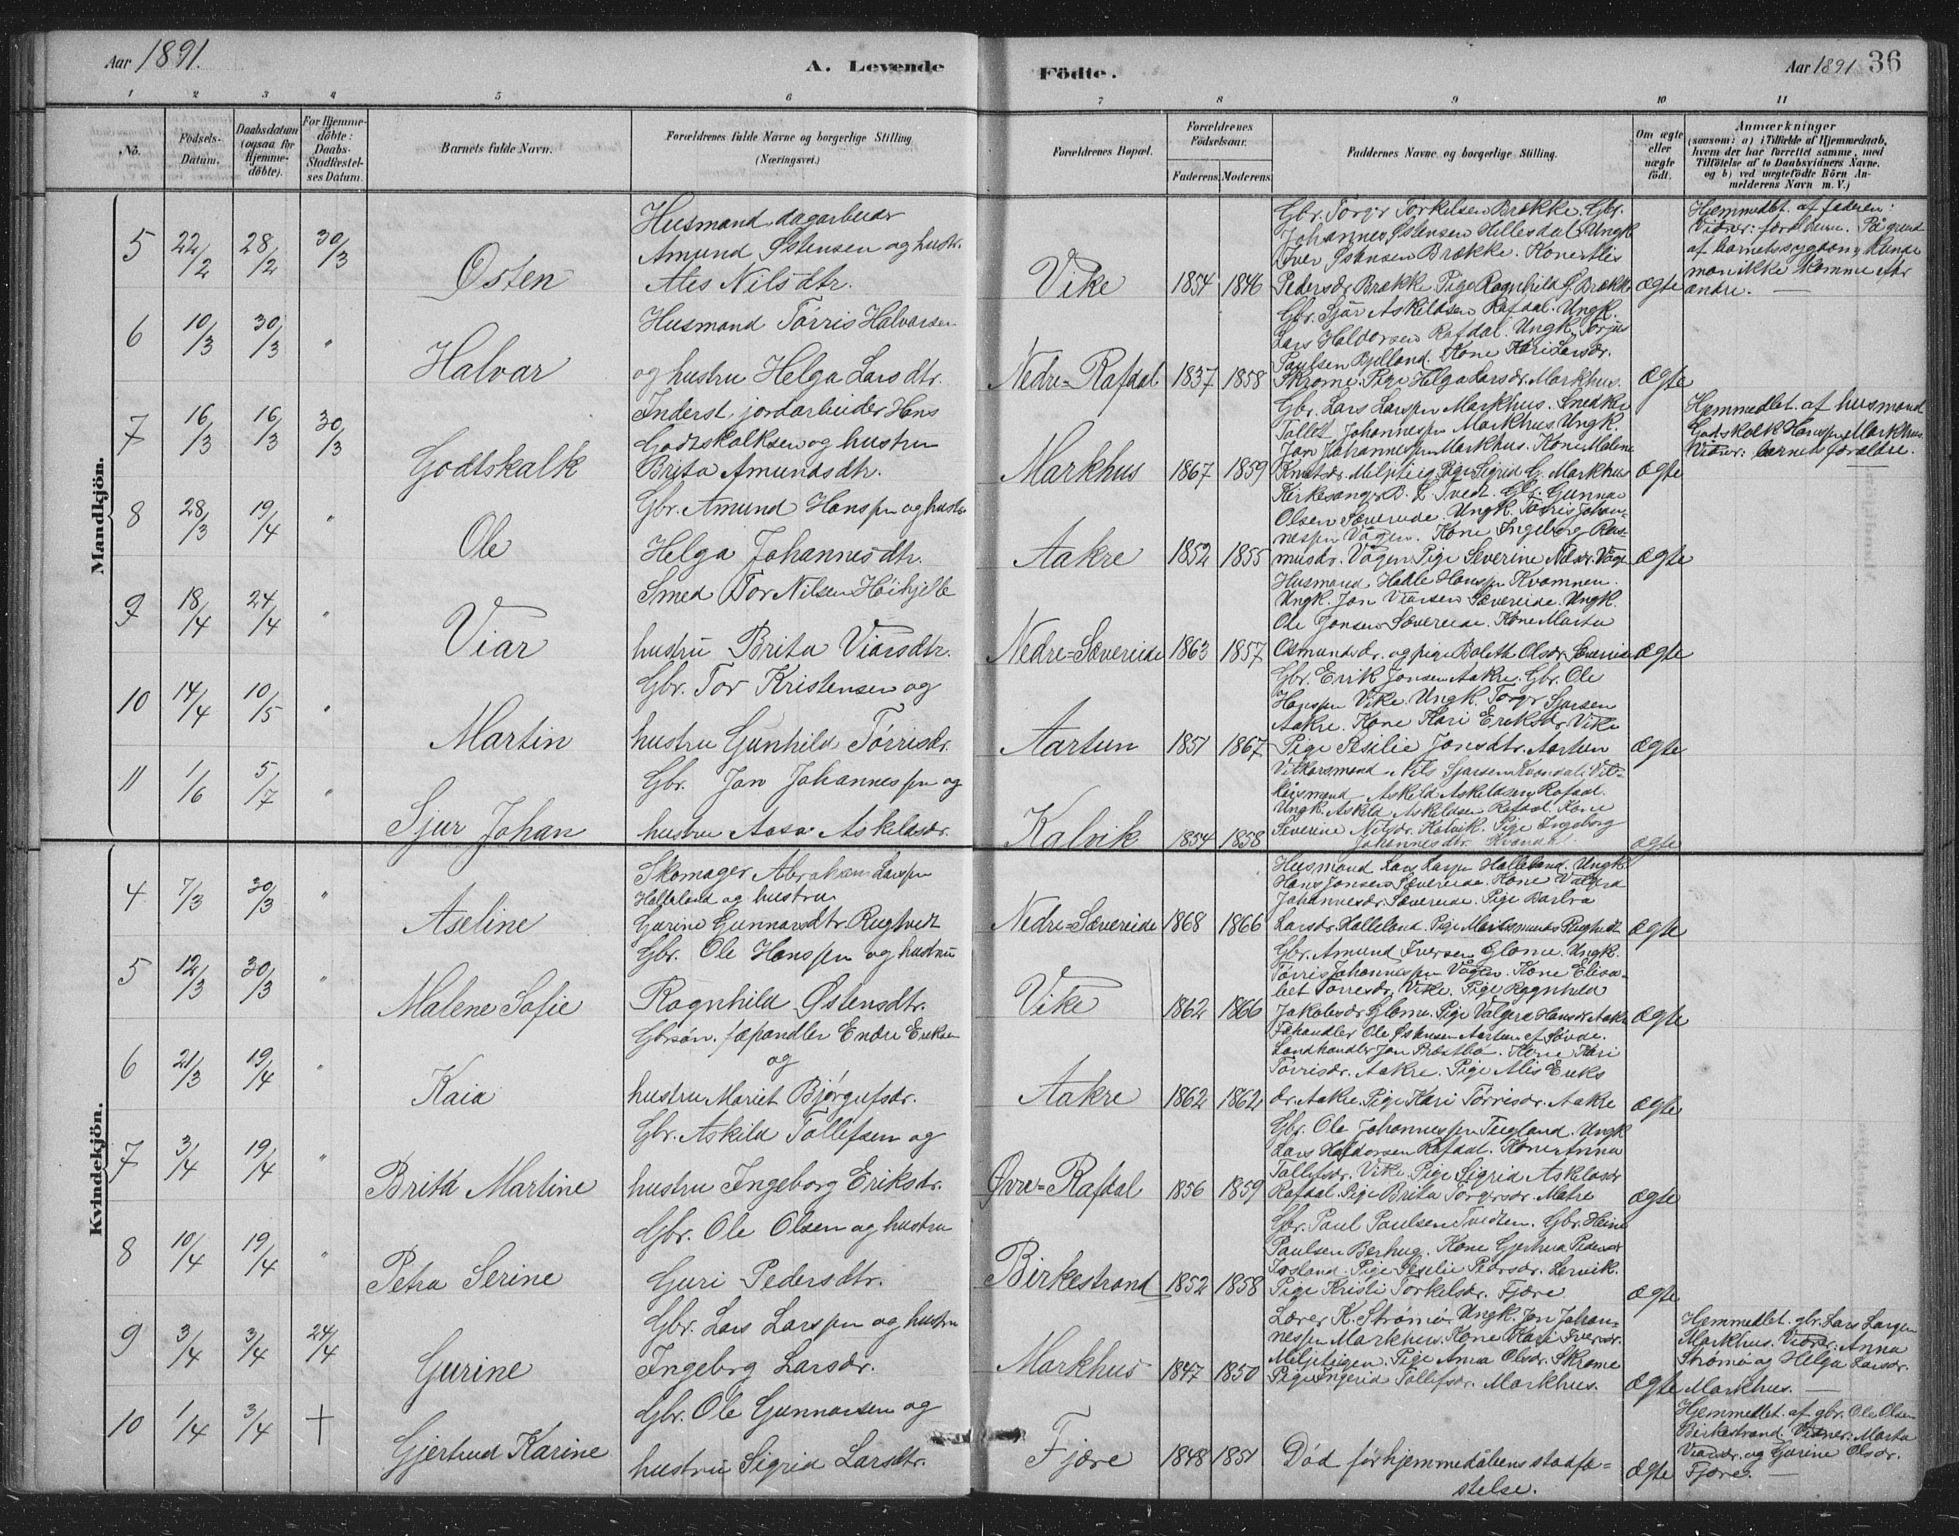 Aar 1891.
A. Levende
Födte.
Aar 1891
36
1 2 3 4 5 6 7 8 9 10 11
No.
Födsels-Datum.
Daabsdatum (ogsaa for Hjemme-döbte).
For Hjemme-döbte: Daabs-Stadfæstel-ses Datum.
Barnets fulde Navn.
Forældrenes fulde Navne og borgerlige Stilling. (Næringsvei.)
Forældrenes Bopæl.
Forældrenes Födselsaar.
Faderens. Moderens.
Faddernes Navne og borgerlige Stilling.
Om ægte eller uægte födt.
Anmærkninger
(saasom: a) i Tilfælde af Hjemmedaab,
hvem der har forrettet samme, med
Tilföielse af to Daabsvidners Navne,
og b) ved uægtefödte Börn An-
melderens Navn m. V.)
Mandkjön.
5 22/2 28/2 30/3 Østen
Husmand dagarbeider
Amund Østensen og hustr.
Ales Nilsdtr.
Vike 1854 1846
Gbr. Torgr Torkelsen Brække. Gbr.
Johannes Østensen Hillesdal. Ungk
Iver Østensen Brække. Kone Alis
Pedersdr Brække. Pige Ragnhild Ø. Brække
ægte
Hjemmedbt. af faderen:
Vidner: forældrene. På grund
af barnets sygdom kunde
man ikke komme efter
andre. —
6 10/3 30/3 " Halvar
Husmand Tørris Halvorsen
og hustru Helga Larsdtr.
Nedre-Rafdal 1837 1858
Gbr. Sjur Askildsen Rafdal. Ungk.
Lars Haldorsen Rafdal. Ungk. Torjus
Paulsen Bjelland. Kone Kari Larsdr.
Skrome. Pige Helga Larsdr. Markhus.
ægte
7 16/3 16/3 30/3 Godtskalk
Inderst, jordarbeider Hans
Godtskalksen og hustru
Brita Amundsdtr.
Markhus 1867 1859
Gbr. Lars Larsen Markhus. Snedker
Tallef Johannessen Markhus. Ungk.
Jon Johannessen Markhus. Kone Malene
Knutsdr. Miljeteig. Pige Sigrid G. Markhus
ægte
Hjemmedbt. af husmand
Godskalk Hanssen Markhus.
Vidner: barnets forældre.
8 28/3 19/4 " Ole
Gbr. Amund Hanssen og hustru
Helga Johannesdtr.
Aakre 1852 1855
Kirkesanger B. L. Tvedt. Gbr. Gunnar
Olsen Sævereide. Ungk. Tørris Johan-
nessen Vågen. Kone Ingeborg Ras-
musdr. Vågen. Pige Severine Nilsdr. Vågen
ægte
9 18/4 24/4 " Viar
Smed Tor Nilsen Høihjelle
hustru Brita Viarsdtr.
Nedre-Sævereide 1863 1857
Husmand Hadle Hanssen Kvamnen.
Ungk. Jon Viarsen Sævereide. Ungk.
Ole Jonsen Sævereide. Kone Marta
Osmundsdr. og pige Boleth Olsdr. Sævereide
ægte
10 14/4 10/5 " Martin
Gbr. Tor Kristensen og
hustru Gunhild Tørrisdr.
Aartun 1851 1867
Gbr. Erik Jonsen Aakre. Gbr. Ole
Hanssen Vike. Ungk. Torgr Sjursen
Aakre. Kone Kari Eriksdr. Vike
og Pige Sesilie Jonsdtr. Aartun
ægte
11 1/6 5/7 " Sjur Johan
Gbr. Jon Johannessen og
hustru Aasa Askildsdr.
Kalvik 1854 1858
Vilkarsmand Nils Sjursen Kvandal. Vil-
kårsmand Askild Askildsen Rafdal.
Ungk. Askild Askildsen Rafdal. Kone
Severine Nilsdr. Kalvik. Pige Ingeborg
Johannesdtr. Kvandal
ægte
Kvindekjön.
4 7/3 30/3 " Aseline
Skomager Abraham Larssen
Halleland og hustru
Gurine Gunnarsdtr. Rugtvedt
Nedre-Sævereide 1868 1866
Husmand Lars Larssen Halleland. Ungk.
Hans Jonsen Sævereide. Kone Valgra
Johannesdr. Sævereide. Pige Barbra
Larsdr. Halleland. Pige Rugtvedt
ægte
5 12/3 30/3 " Malene Sofie
Gbr. Ole Hanssen og hustru
Ragnhild Østensdtr.
Vike 1862 1866
Gbr. Amund Iversen Glome. Ungk.
Tørris Johannessen Vågen. Kone Elisa-
bet Torresdr. Vike. Pige Ragnhild
Jakobsdr. Glome. Pige Valgera Hansdr. Aakre
ægte
6 21/3 19/4 " Kaia
Gbrsøn. fæhandler Endre Eriksen
og
hustru Mariet Bjørgufsdr.
Aakre 1862 1862
Fæhandler Ole Østensen Aartun af Søvde.
Landhandler Jon Prestbø. Kone Kari
Tørrisdr. Aakre. Pige Alis Eriks
dr. Aakre. Pige Kari Tørrisdr. Aakre
ægte
7 3/4 19/4 " Brita Martine
Gbr. Askild Tollefsen og
hustru Ingeborg Eriksdr.
Øvre-Rafdal 1856 1859
Gbr. Ole Johannessen Teigland. Ungk
Lars Haldorsen Rafdal. Kone Anna
Tallefsdr. Vike. Pige Sigrid Askildsdr
Rafdal. Pige Brita Torgersdr. Matre
ægte
8 10/4 19/4 " Petra Serine
Gbr. Ole Olsen og hustru
Guri Pedersdtr.
Birkestrand 1852 1858
Gbr. Paul Paulsen Tvedten. Gbr. Heine
Paulsen Berhug. Kone Gjertrud Pedersdr
Pige Sesilie Lervik.
Pige Kristi Torkelsdr. Fjære
ægte
9 3/4 3/4 24/4 Gurine
Gbr. Lars Larssen og hustru
Ingeborg Larsdr.
Markhus 1847 1850
Lærer K. Strømø. Ungk. Jon Johan-
nessen Markhus. Kone Kari Iversdr.
Miljeteigen. Pige Anna Olsdr. Skrome
Pige Ingerid Tollefsdr. Markhus.
ægte
Hjemmedbt. gbr. Lars Larssen
Markhus. Vidner: Anna
Strømø og Helga Larsdr.
Markhus. —
10 1/4 3/4 † Gjertrud Karine
Gbr. Ole Gunnarsen og
hustru Sigrid Larsdtr.
Fjære 1848 1851
Død før hjemmedåbens stadfæ-
stelse.
ægte
Hjemmedbt. af gbr. Ole Olsen
Birkestrand. Vidner: Marta
Viarsdr. og Gurine Olsdr.
Fjære. —